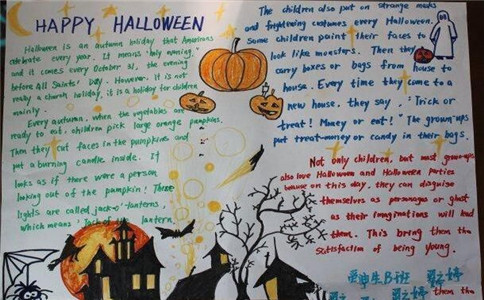 HAPPY HALLOWEEN
Halloween is an autumn holiday that Americans
celebrate every year. It means "holy evening,"
and it comes every October 31, the evening
before All Saints' Day. However. It is not
really a church holiday, it is a holiday for children
mainly.
Every autumn, when the vegetables are
ready to eat. children pick large orange pumpkins.
Then they cut faces in the pumpkins and
put a burning candle inside. It
looks as if there were a person
looking out of the pumpkin! These
lights are called jack-o'-lanterns,
which means "Jack of the lantern.
The children also put on strange masks
and frightening costumes every Halloween.
Some children paint their faces to
look like monsters. Then they
carry boxes or bags from house to
house. Every time they come to a
new house, they say. "Trick or
treat! Money or eat!" The grown-ups
put treat-money or candy in their bags.
Not only children, but most grown-ups
also love Halloween and Halloween parties
because on this day, they can disguise
themselves as personages or ghost
as their imaginations will lead
them. This bring them the
satisfaction of being young.
B班
them the